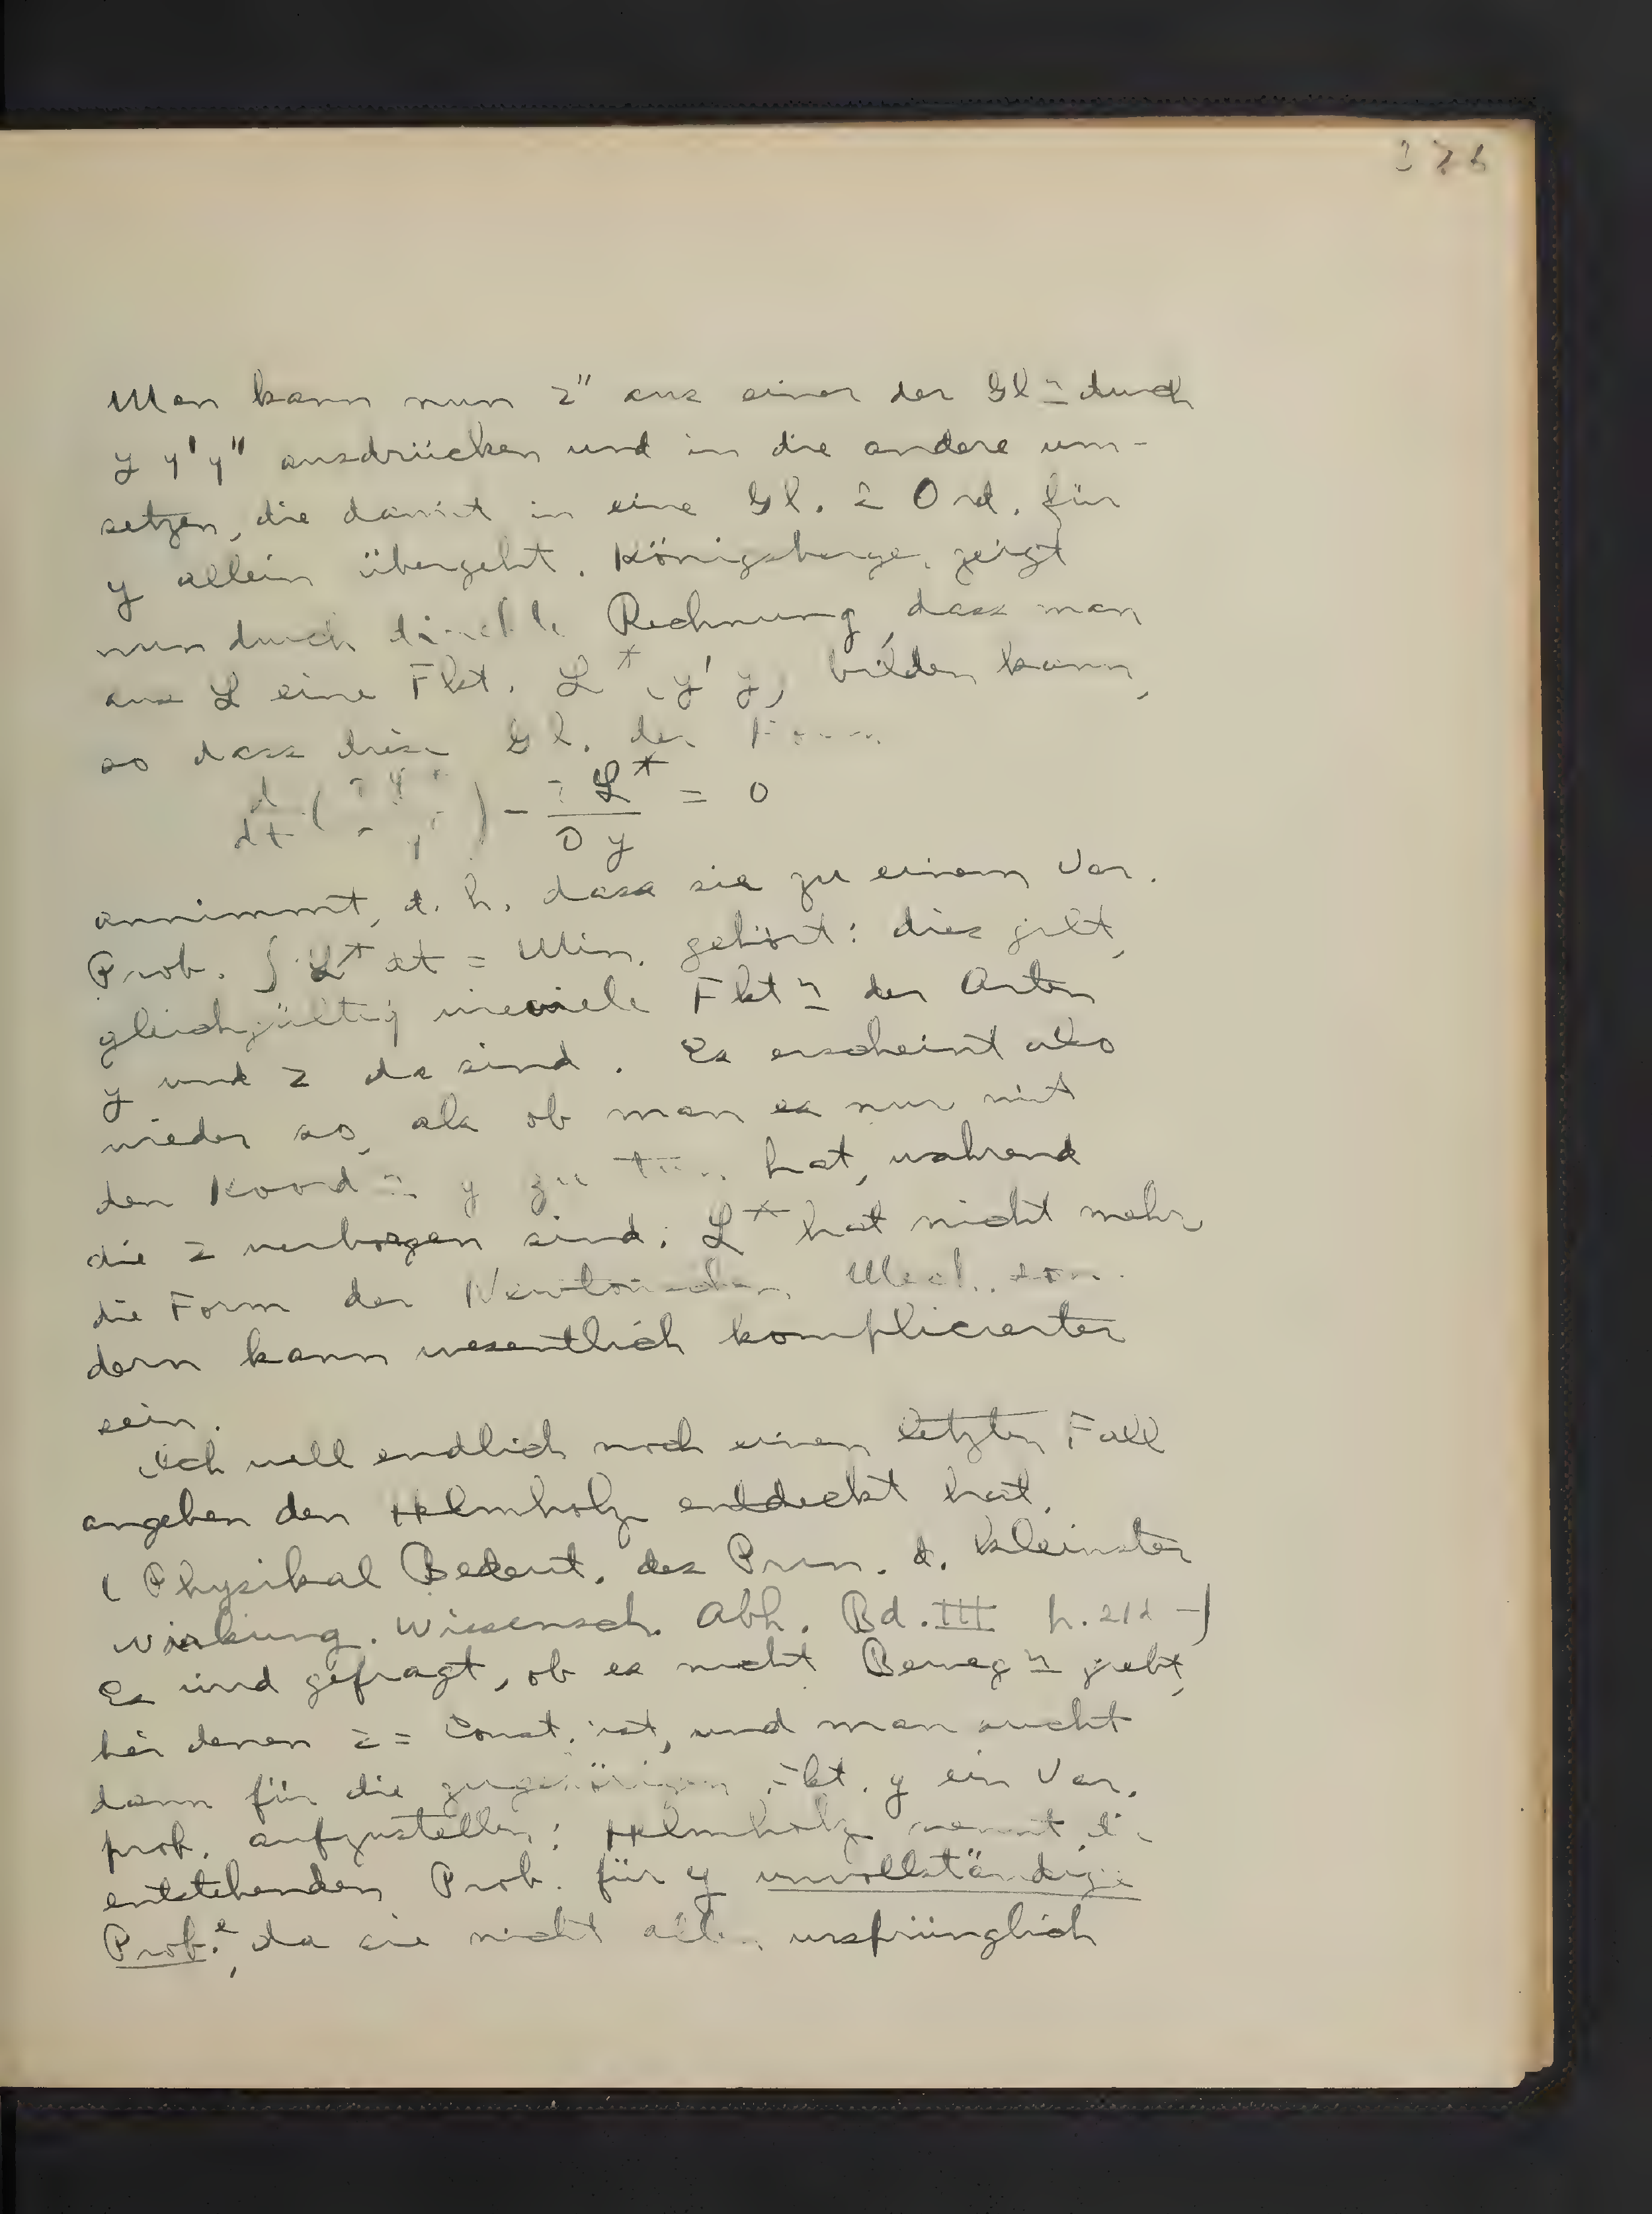 Man kann nun z'' aus einer der Gln durch
y y' y'' ausdrücken und in die andere um-
setzen, die damit in eine Gl. 2 Ord. für
y allein übergeht. Königsberger zeigt
nun durch direkte Rechnung, dass man
aus L eine Fkt. L* (y' y) bilden kann,
so dass diese Gl. der Form
d/dt ( ) - ∂L*/∂y = 0
annimmt, d. h. dass sie zu einem Var.
Prob. ∫ L* dt = Min. gehört: dies gilt,
gleichgültig wieviele Fktn der Arten
y und z da sind. Es erscheint also
wieder so, als ob man es nur mit
den Koordn y zu tun hat, während
die z verborgen sind; L* hat nicht mehr
die Form der Newtonschen Mech. son-
dern kann wesentlich komplicierter
sein.
Ich will endlich noch einen letzten Fall
angeben den Helmholz entdeckt hat.
(Physikal Bedeut. des Prin. d. kleinsten
Wirkung. Wissensch. Abh. Bd. III p.
Es wird gefragt, ob es nicht Bewegn giebt,
bei denen ż = Const. ist, und man sucht
dann für die zugehörigen Fkt. y ein Var.
prob. aufzustellen; Helmholz nennt die
entstehenden Prob. für y unvollständige
Prob.e, da sie nicht alle ursprünglich